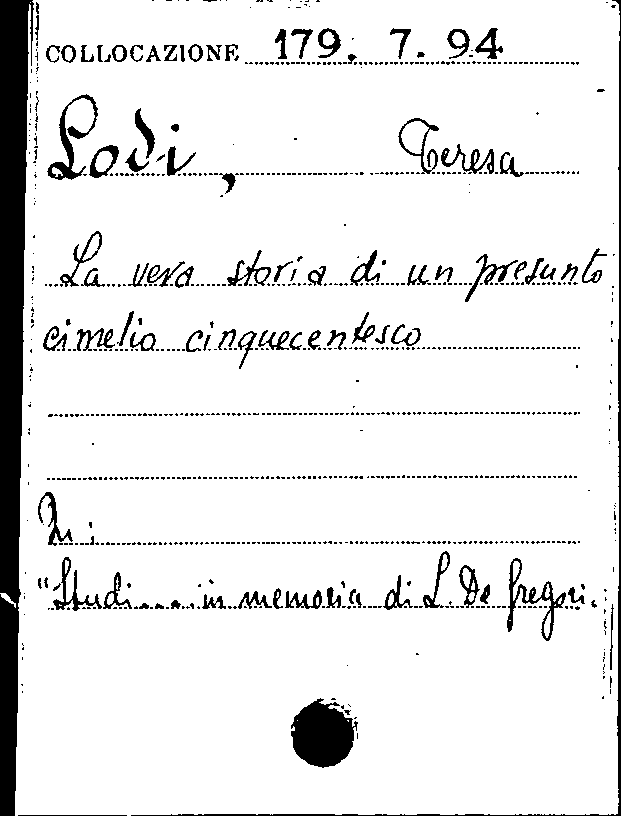 COLLOCAZIONE 179. 7. 94
Lodi, Teresa
La vera storia di un presunto
cimelio cinquecentesco
In:
"Studi.... in memoria di L. De Gregori.